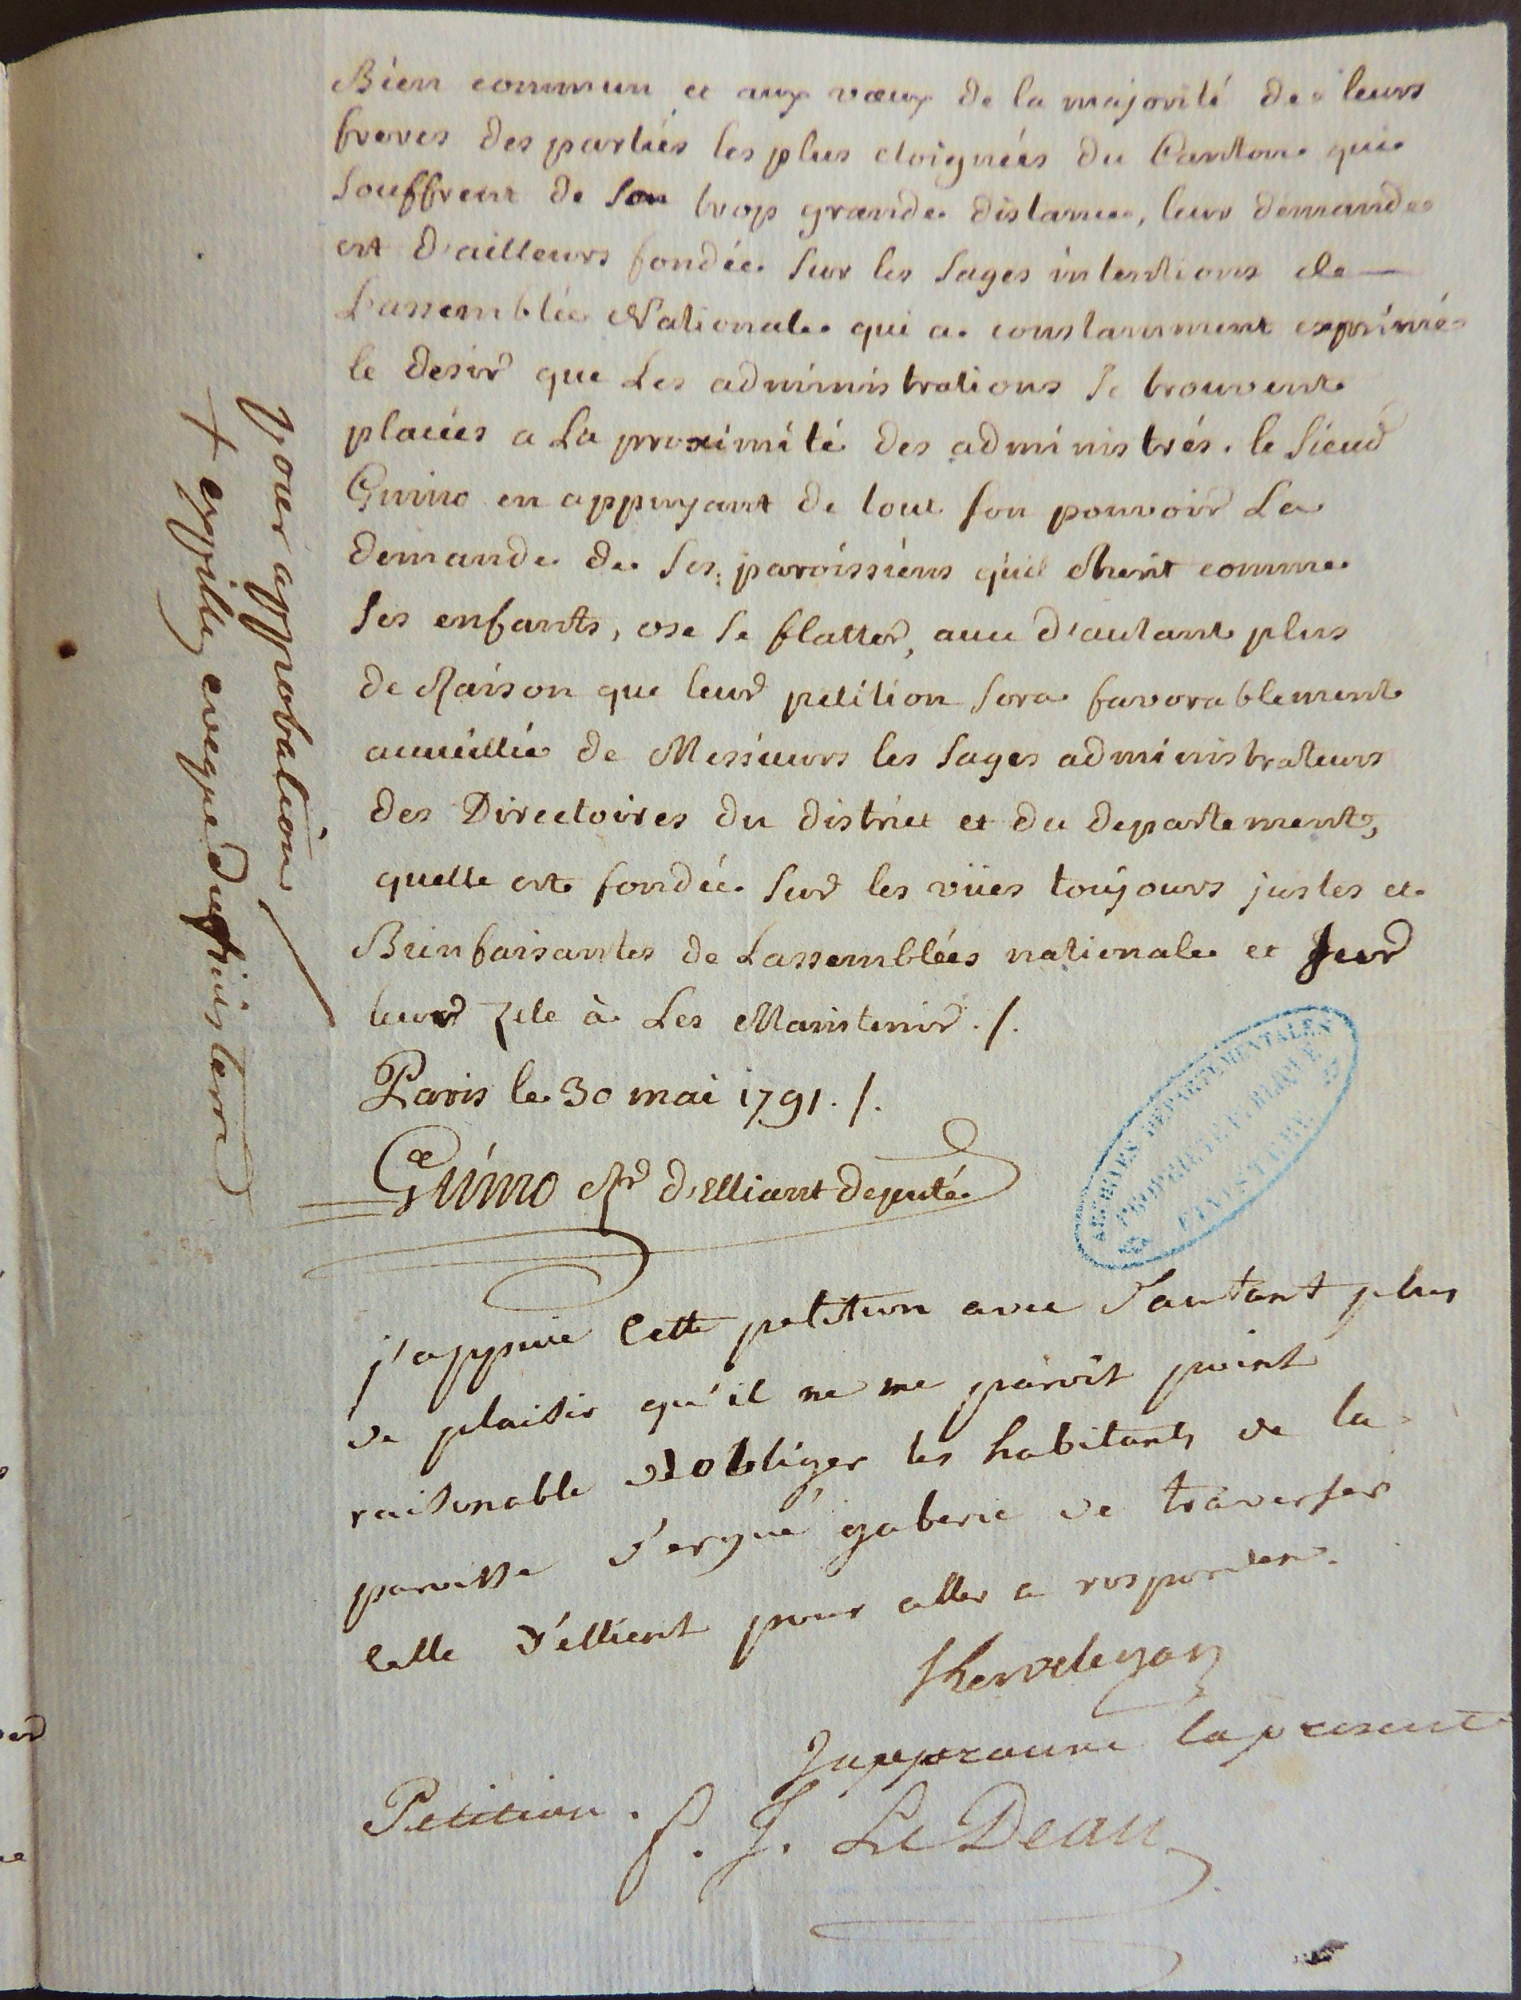 Bien commun et aux vœux de la majorité de leurs
freres des parties les plus eloignées du Canton qui
souffrent de son trop grande distance, leur demande
est d'ailleurs fondée sur les sages intentions de
L'assemblée Nationale qui a constamment exprimé
le desir que Les administrations se trouvent
placées a La proximité des administrés. le Sieur
Guino en appuyant de tout son pouvoir La
demande de ses paroissiens qu'il cherit comme
ses enfants, ose se flatter, avec d'autant plus
de Raison que leur petition sera favorablement
accueillie de Messieurs les sages administrateurs
des Directoires du district et du departement,
quelle est fondée sur les vües toujours justes et
Bienfaisantes de Lassemblées nationale et sur
leur zele à Les Maintenir ./.
Paris le 30 mai 1791 ./.
Guino Rr d'Elliant deputé
j'appuie cette petition avec d'autant plus
de plaisir qu'il ne me paroit point
raisonable d'obliger les habitants de la
paroisse d'ergué gaberic de traverser
celle d'ellient pour aller a rosporden.
Kervelegan
Japprouve la presente
Petition. f. J. Le Deau
pour approbation
+ expilly eveque du finisterre
ARCHIVES DÉPARTEMENTALES
PROPRIÉTÉ PUBLIQUE
FINISTÈRE